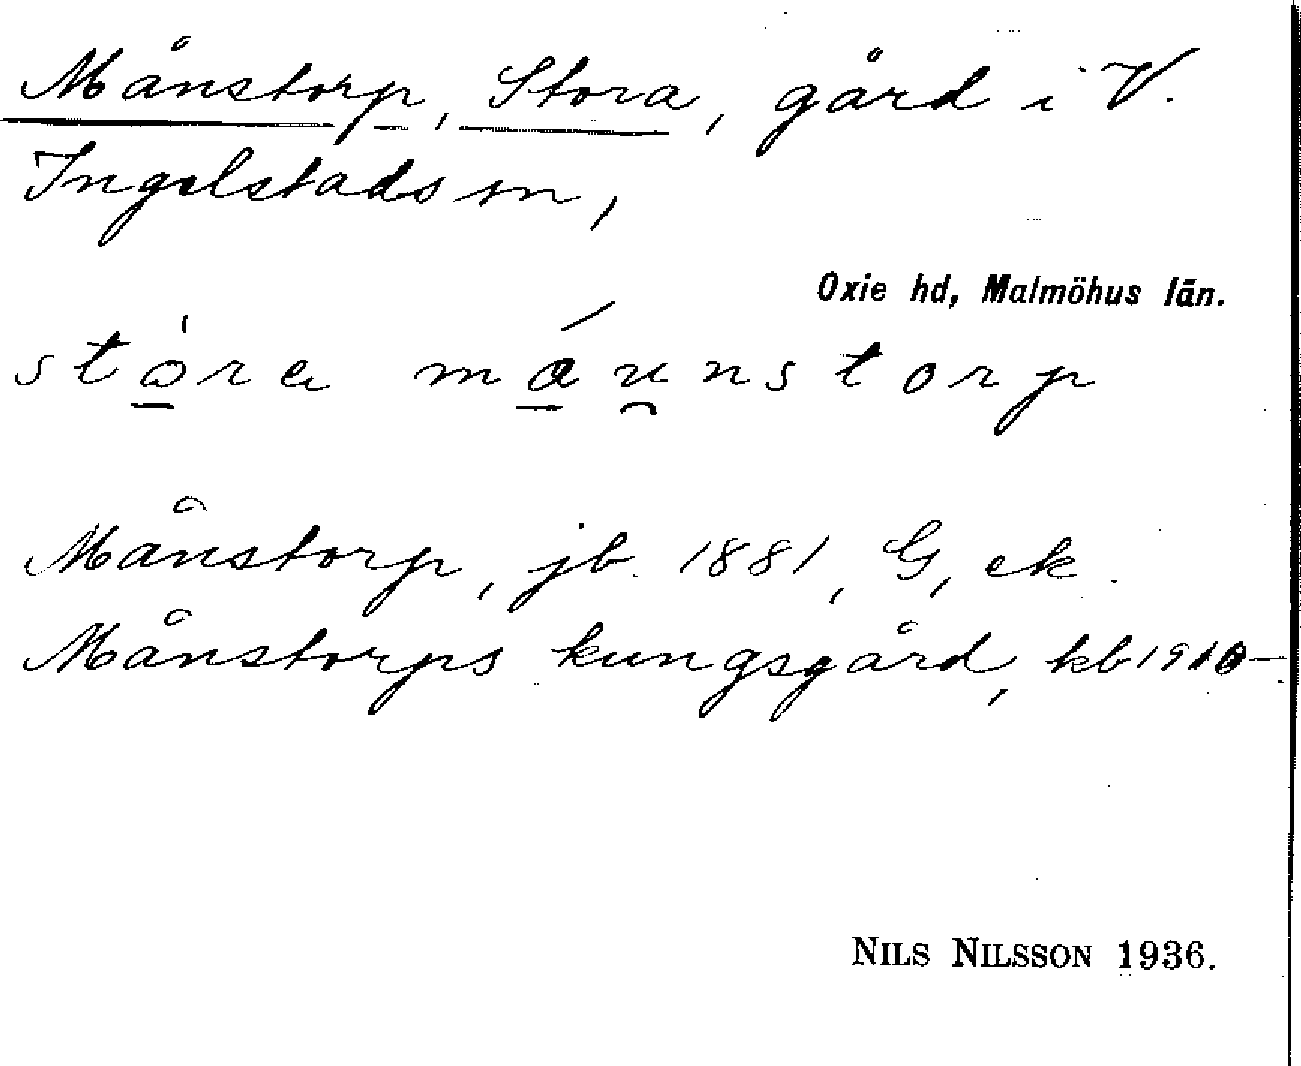 Månstorp, Stora, gård i V.
Ingelstads sn,
Oxie hd, Malmöhus län.
stò̱ra má̱u̯nstorp
Månstorp, jb. 1881, G, ek.
Månstorps kungsgård, kb 1910–
NILS NILSSON 1936.